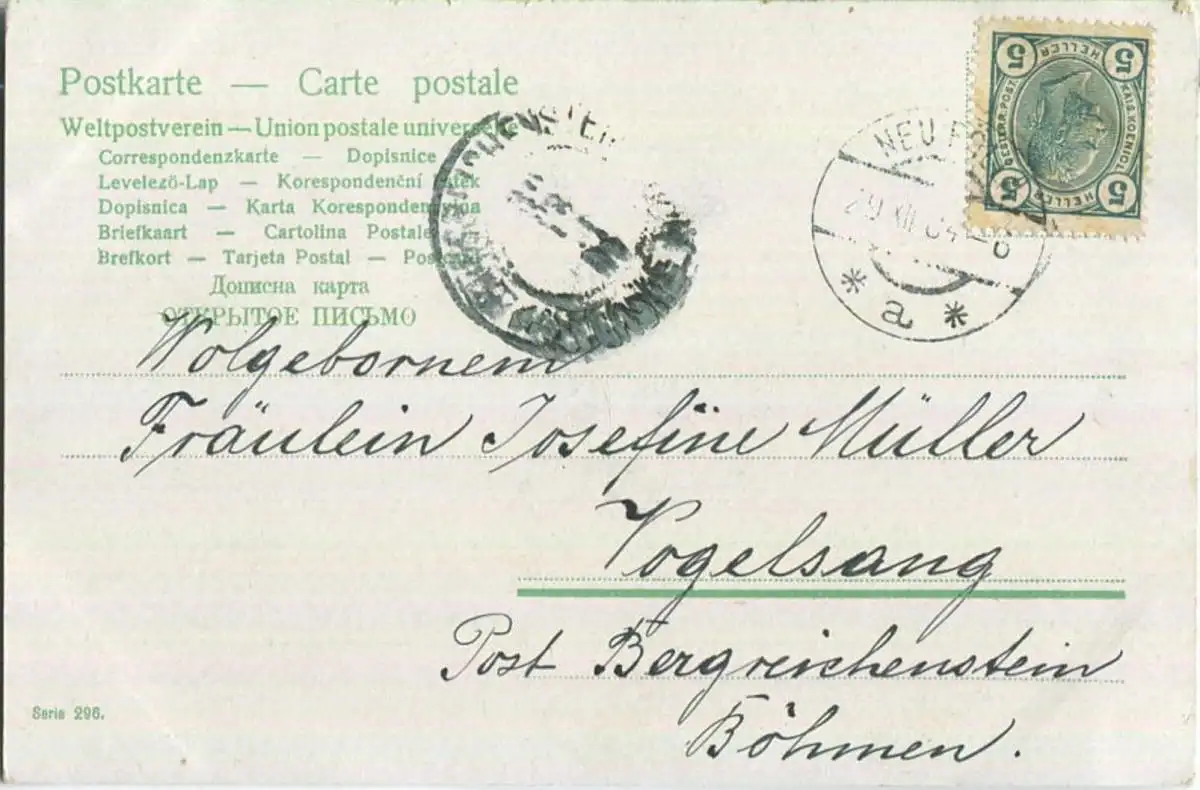 Postkarte — Carte postale
Weltpostverein — Union postale universelle
Correspondenzkarte — Dopisnice
Levelező-Lap — Korespondenční lístek
Dopisnica — Karta Korespondencyjna
Briefkaart — Cartolina Postale
Brefkort — Tarjeta Postal — Postcard
Дописна карта
ОТКРЫТОЕ ПИСЬМО
5 HELLER 5
OESTERR. POST
KAIS. KOENIGL.
5 HELLER 5
NEU
29 XII 04
* a *
Wolgebornem
Fräulein Josefine Müller
Vogelsang
Post Bergreichenstein
Böhmen.
Serie 296.